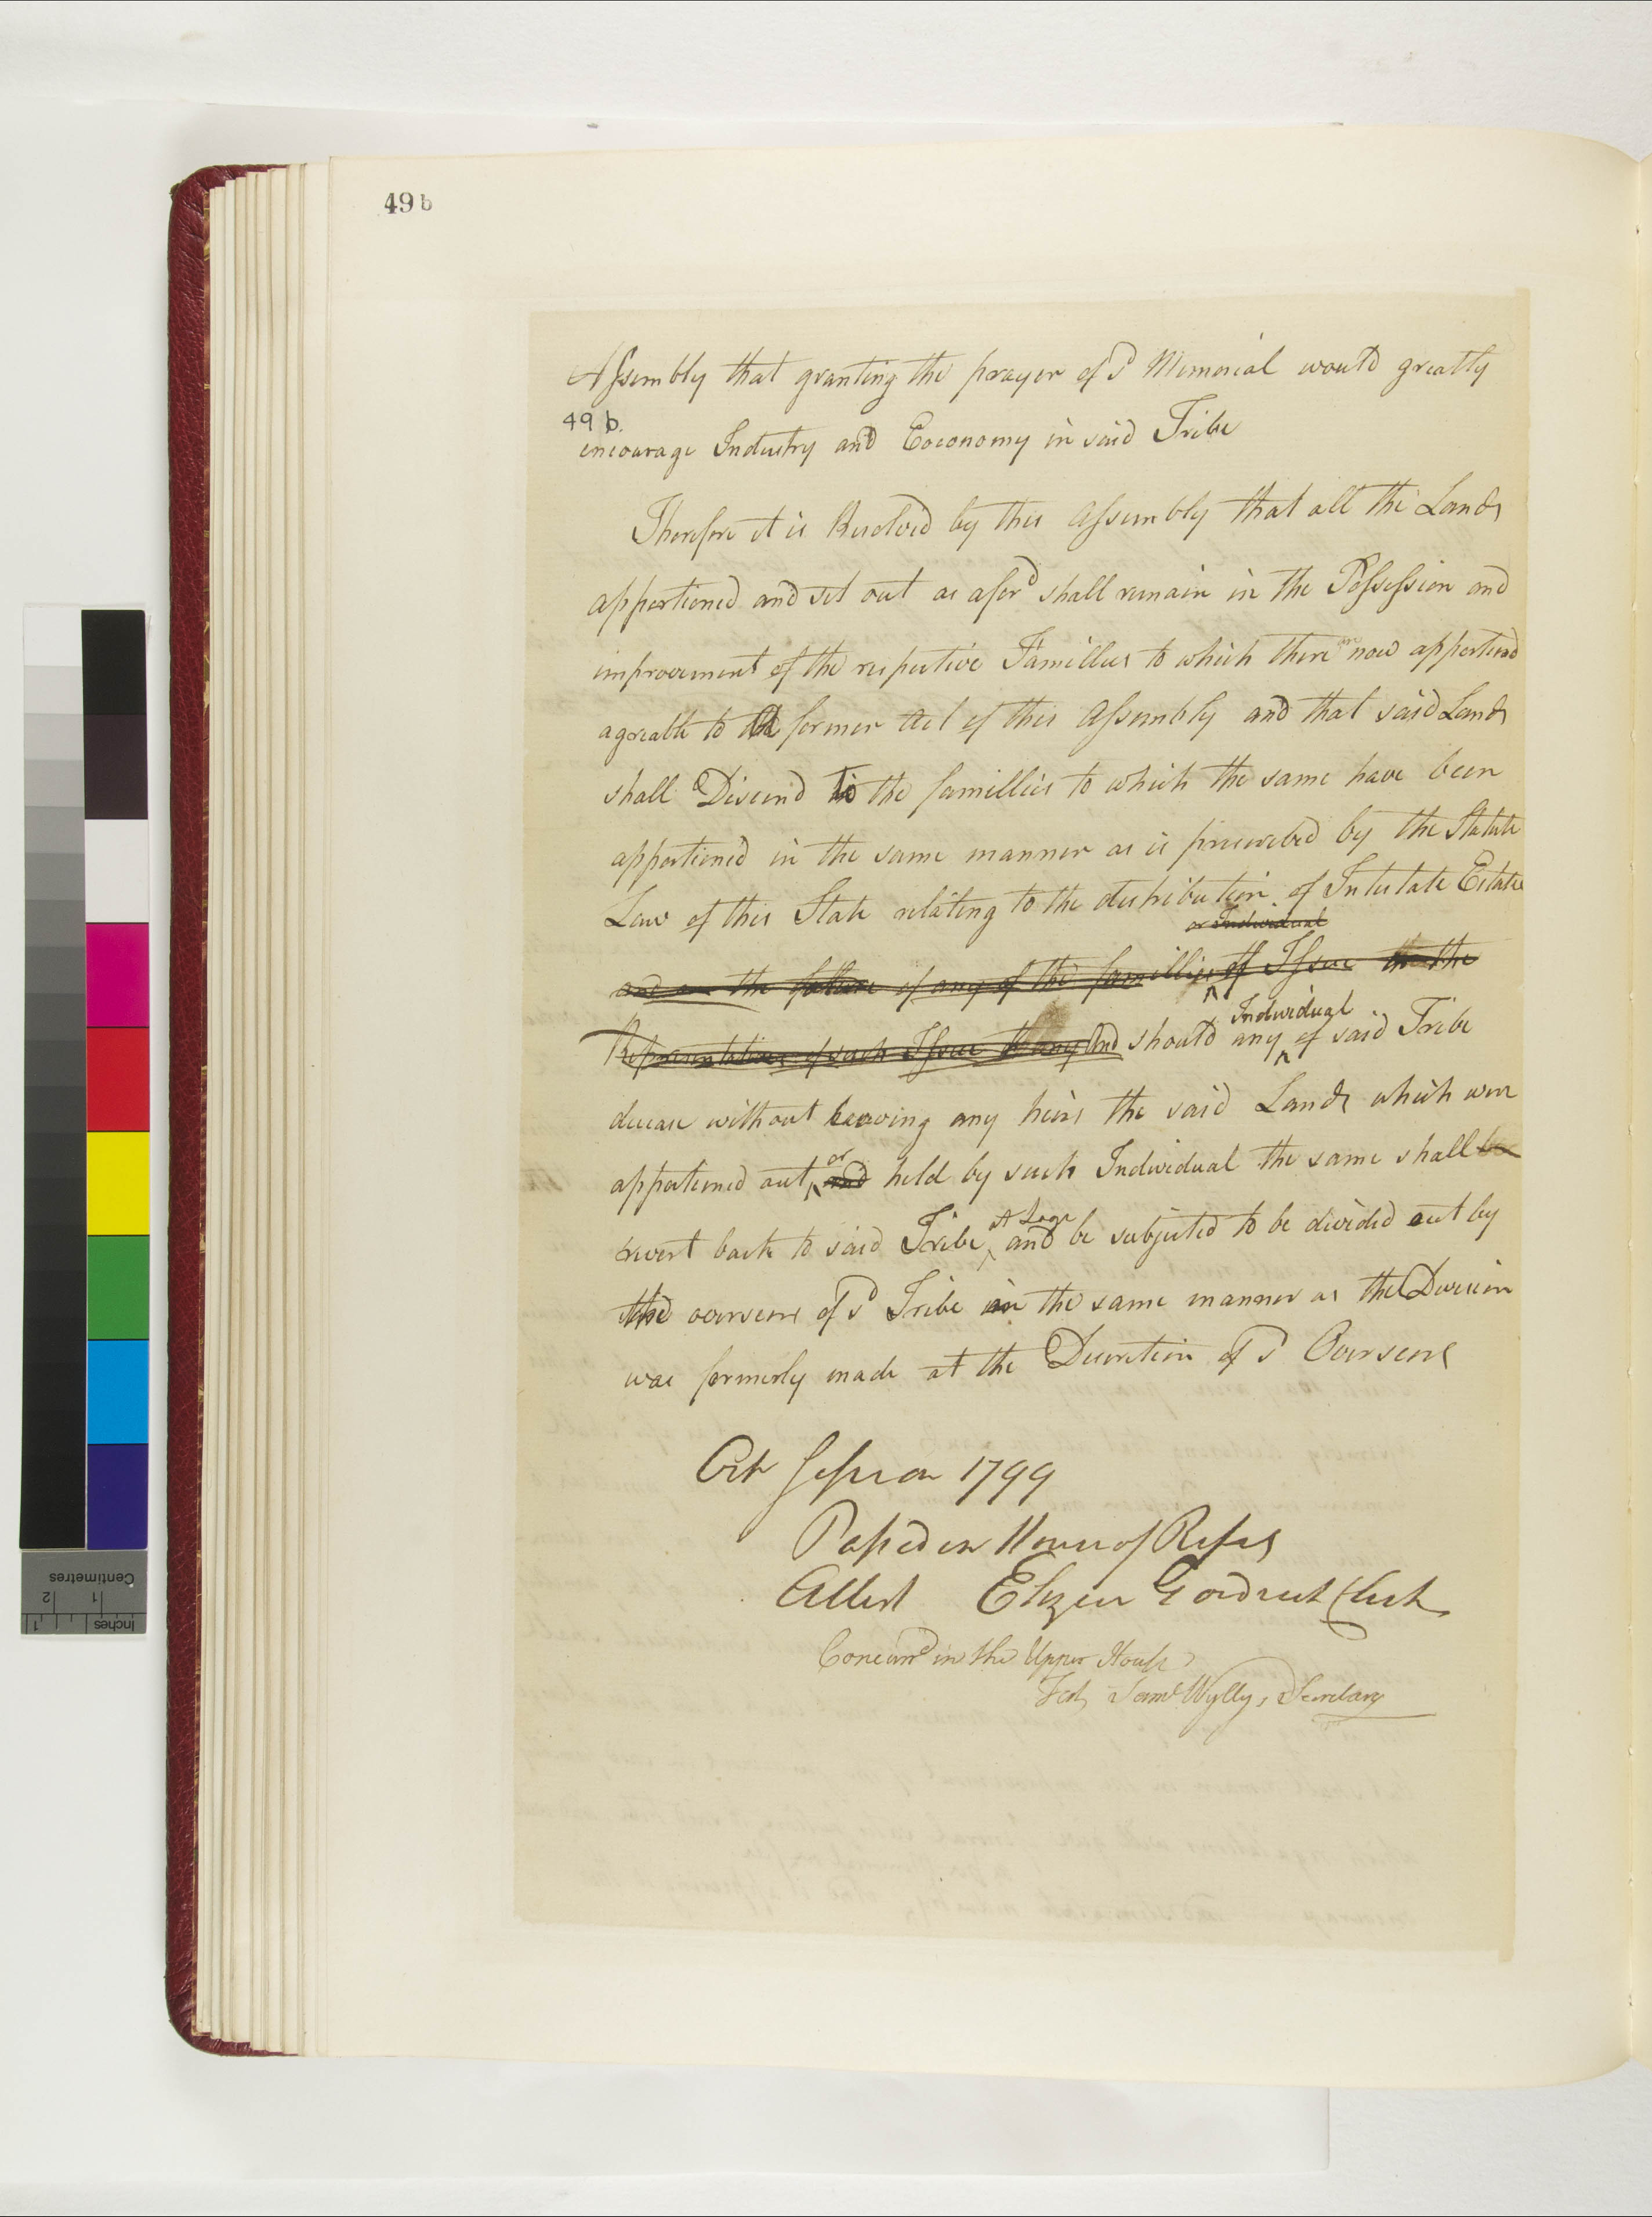 49 b
Assembly that granting the prayer of sd Memorial would greatly
49 b.
encourage Industry and Eoconomy in said Tribe
Therefore it is Resolved by this Assembly that all the Lands
apportioned and set out as aford shall remain in the Possession and
improvement of the respective Famillies to which there now apportiond
agreable to a former Act of this Assembly and that said Lands
shall Discend to the famillies to which the same have been
apportioned in the same manner as is prescrebed by the Statute
Law of this State relating to the distribution of Intestate Estates
or Individual
and on the failure of any of the famillies of Issue then the
Representatives of such Issue And should any of said Tribe
Individual
decease without leaving any heirs the said Lands which were
apportioned out and held by such Individual the same shall be
or
revert back to said Tribe and be subjected to be divided out by
at Large
the overseers of sd Tribe in the same manner as the Division
was formerly made at the Discretion of sd Overseers
Oct Session 1799
Passed in House of Reps
Attest Elizur Goodrich Clerk
Concurrd in the Upper House
Test, Saml Wyllys, Secretary
Centimetres
1 2
Inches
1